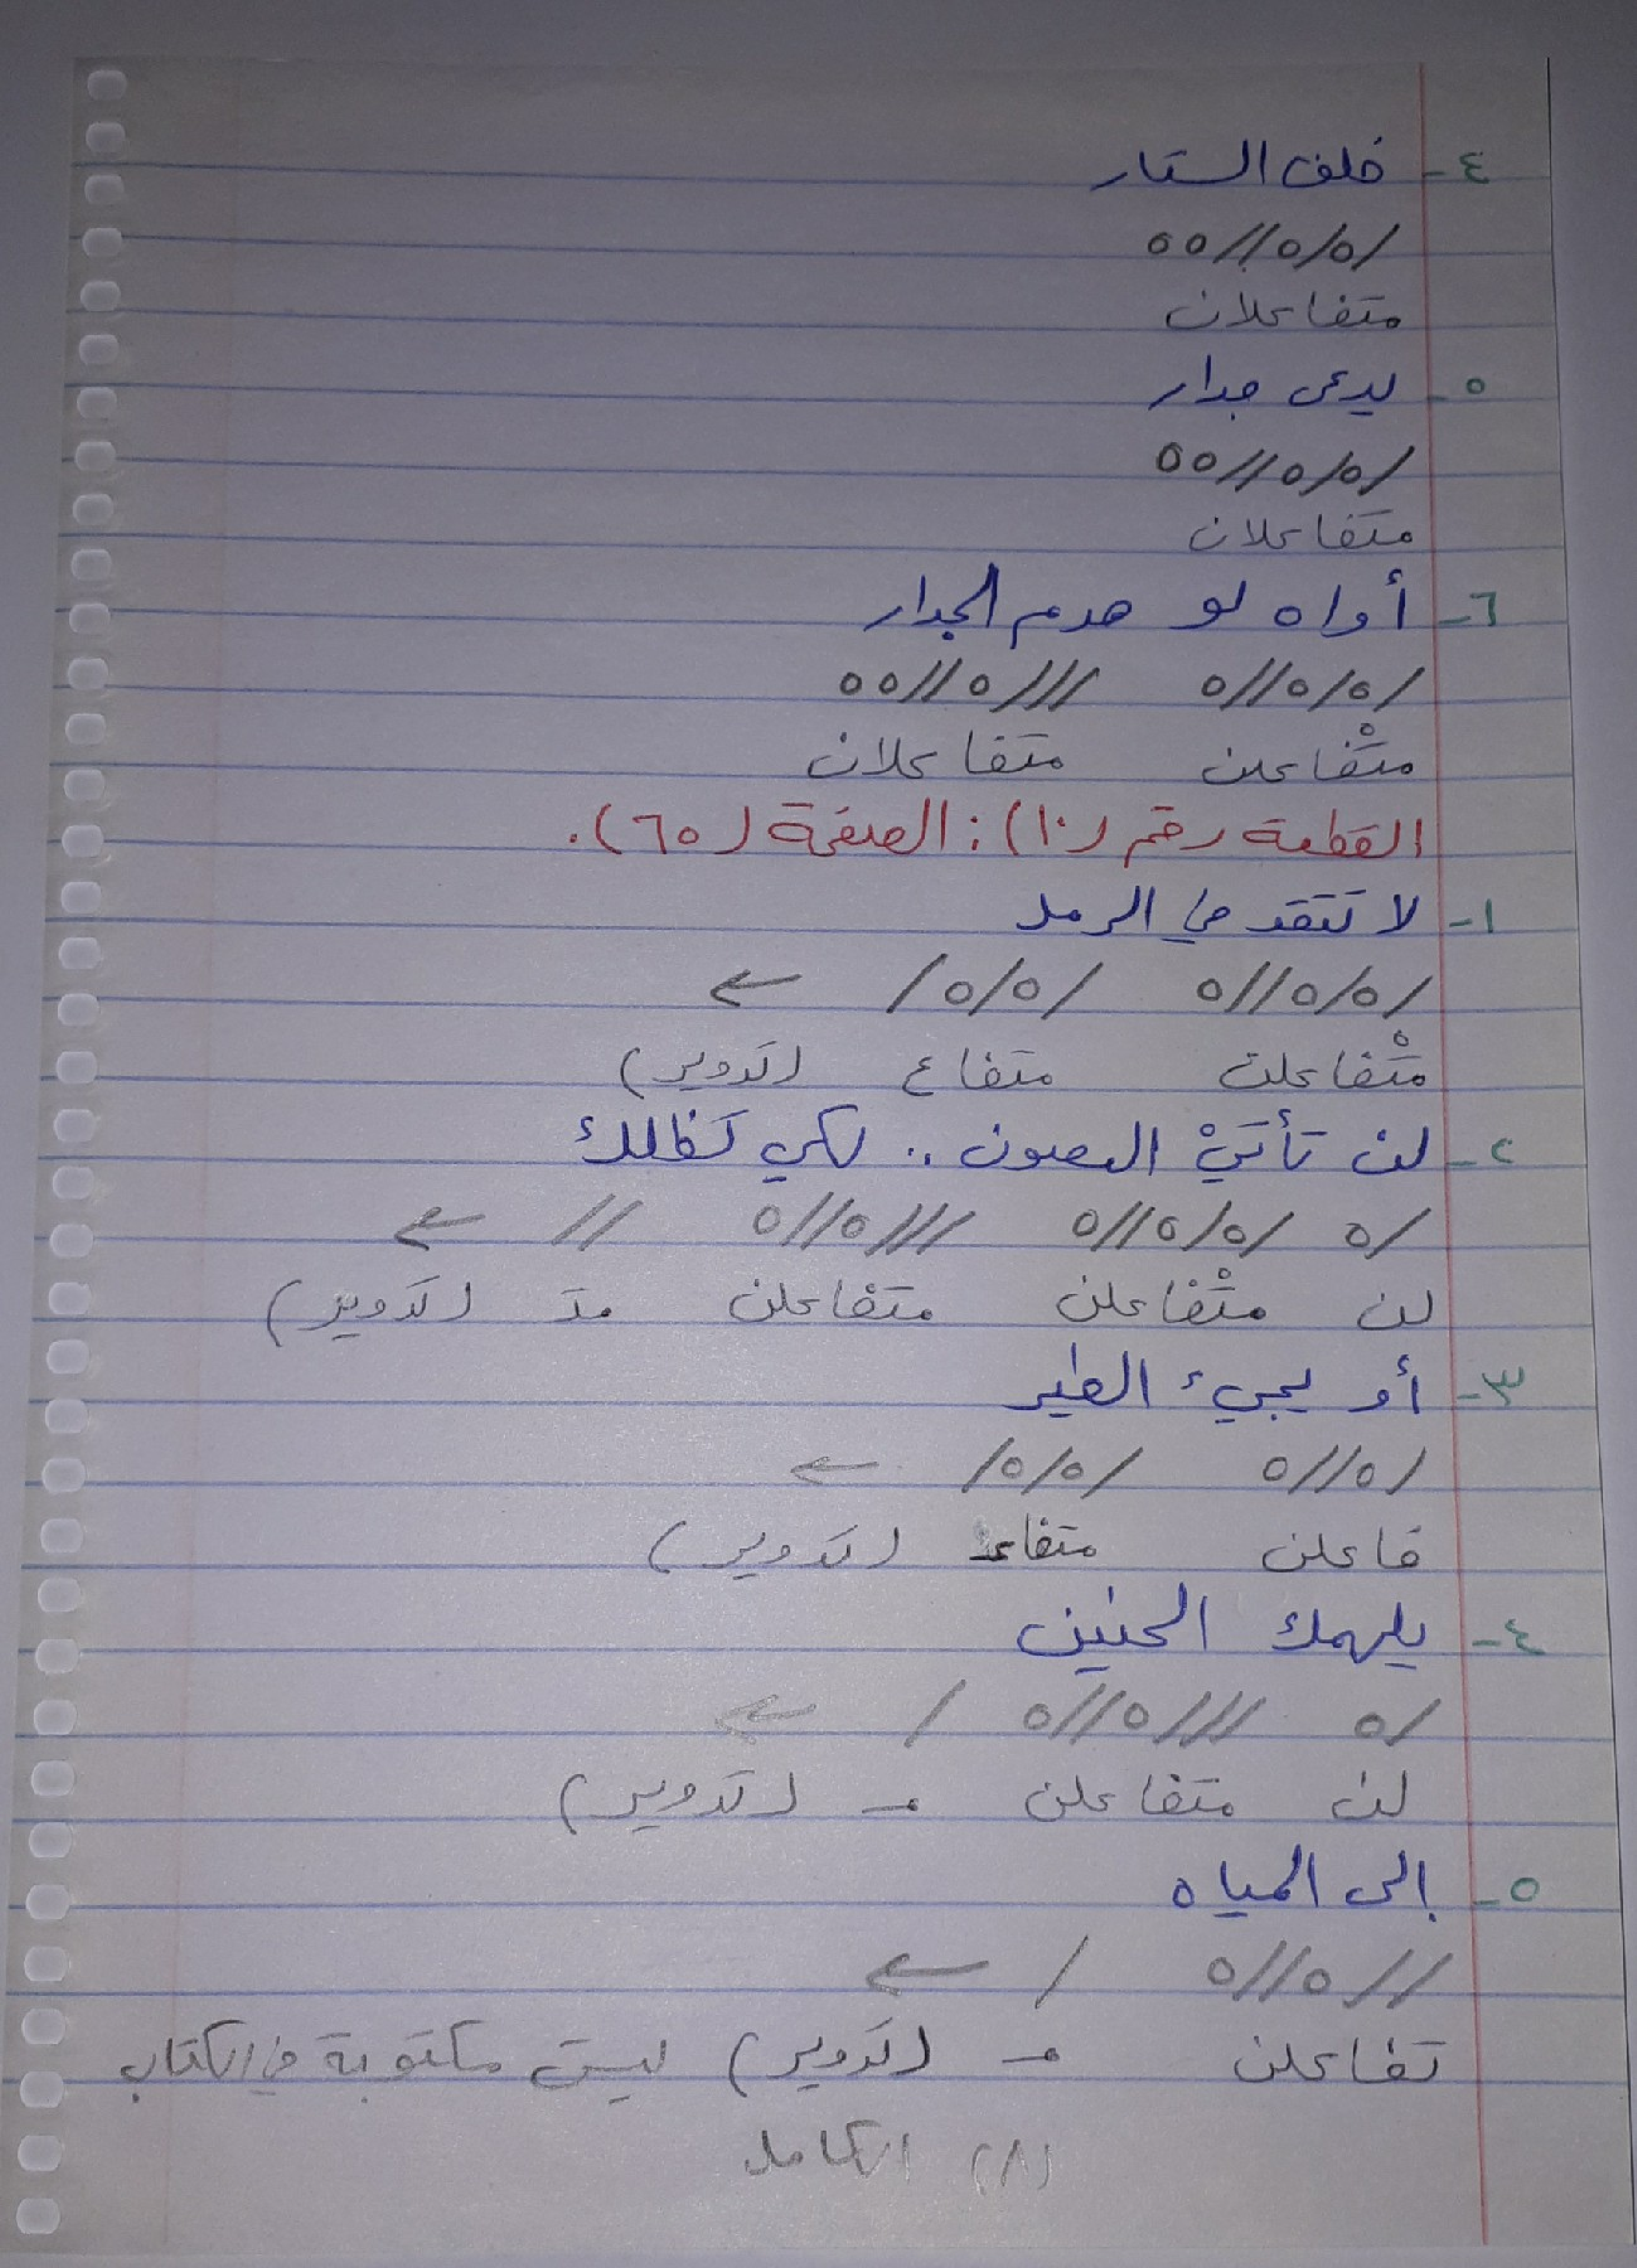 ٤- خلف الستار
/٥/٥//٥٥
متفاعلان
٥- يدعى جدار
/٥/٥//٥٥
متفاعلان
٦- أواه لو هدم الجدار
/٥/٥//٥ ///٥//٥٥
متْفاعلن متفاعلان
القطعة رقم (١٠): الصفحة (٦٥).
١- لا تتقد في الرمل
/٥/٥//٥ /٥/٥/ ←
متْفاعلن متفاع (تدوير)
٢- لن تأتيْ الغصون .. لكي تظللك
/٥ /٥/٥//٥ ///٥//٥ // ←
لن متْفاعلن متفاعلن مت (تدوير)
٣- أو يجيء الطير
/٥//٥ /٥/٥/ ←
فاعلن متفاعـ (تدوير)
٤- يلهمك الحنين
/٥ ///٥//٥ / ←
لن متفاعلن مـ (تدوير)
٥- إلى المياه
//٥//٥ / ←
تفاعلن مـ (تدوير) ليست مكتوبة في الكتاب
(٨) الكامل